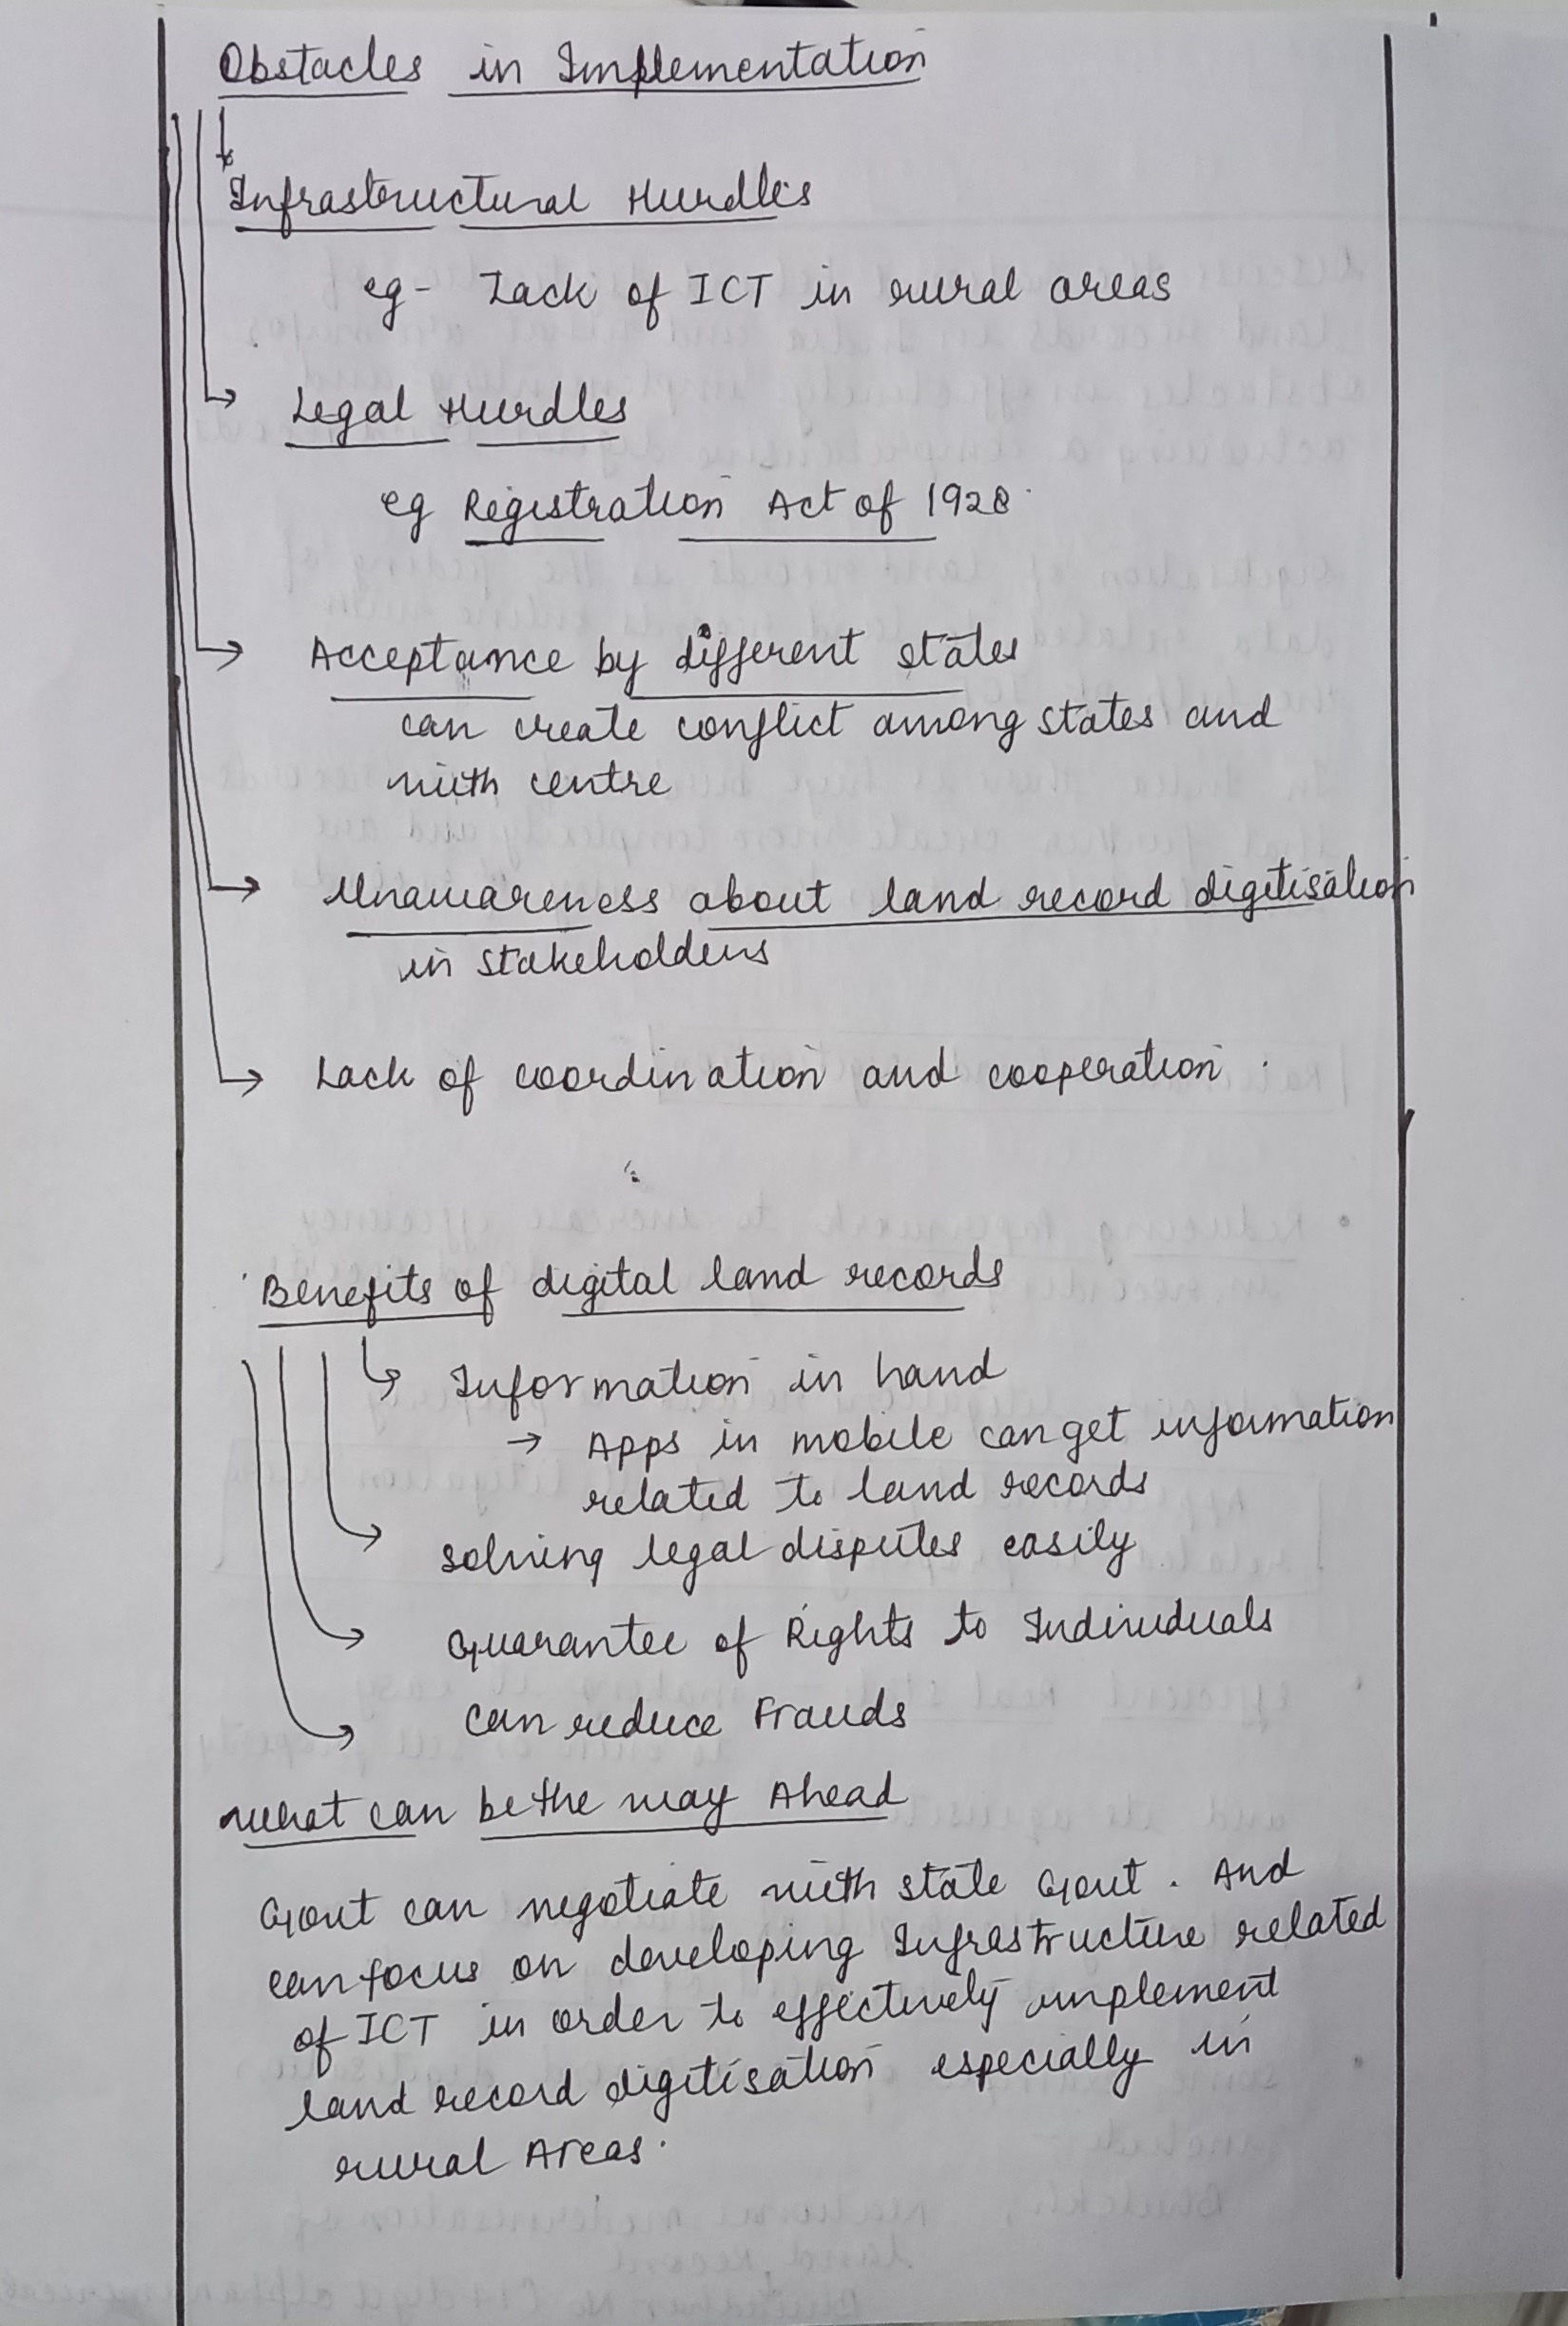 Obstacles in Implementation
Infrastructural Hurdles
eg- Lack of ICT in rural areas
Legal Hurdles
eg Registration Act of 1928.
Acceptance by different states
can create conflict among states and
with centre
Unawareness about land record digitisation
in stakeholders
Lack of coordination and cooperation.
Benefits of digital land records
Information in hand
→ Apps in mobile can get information
related to land records
solving legal disputes easily
Guarantee of Rights to Individuals
can reduce Frauds
What can be the way Ahead
Govt can negotiate with state Govt. And
can focus on developing Infrastructure related
of ICT in order to effectively implement
land record digitisation especially in
rural Areas.